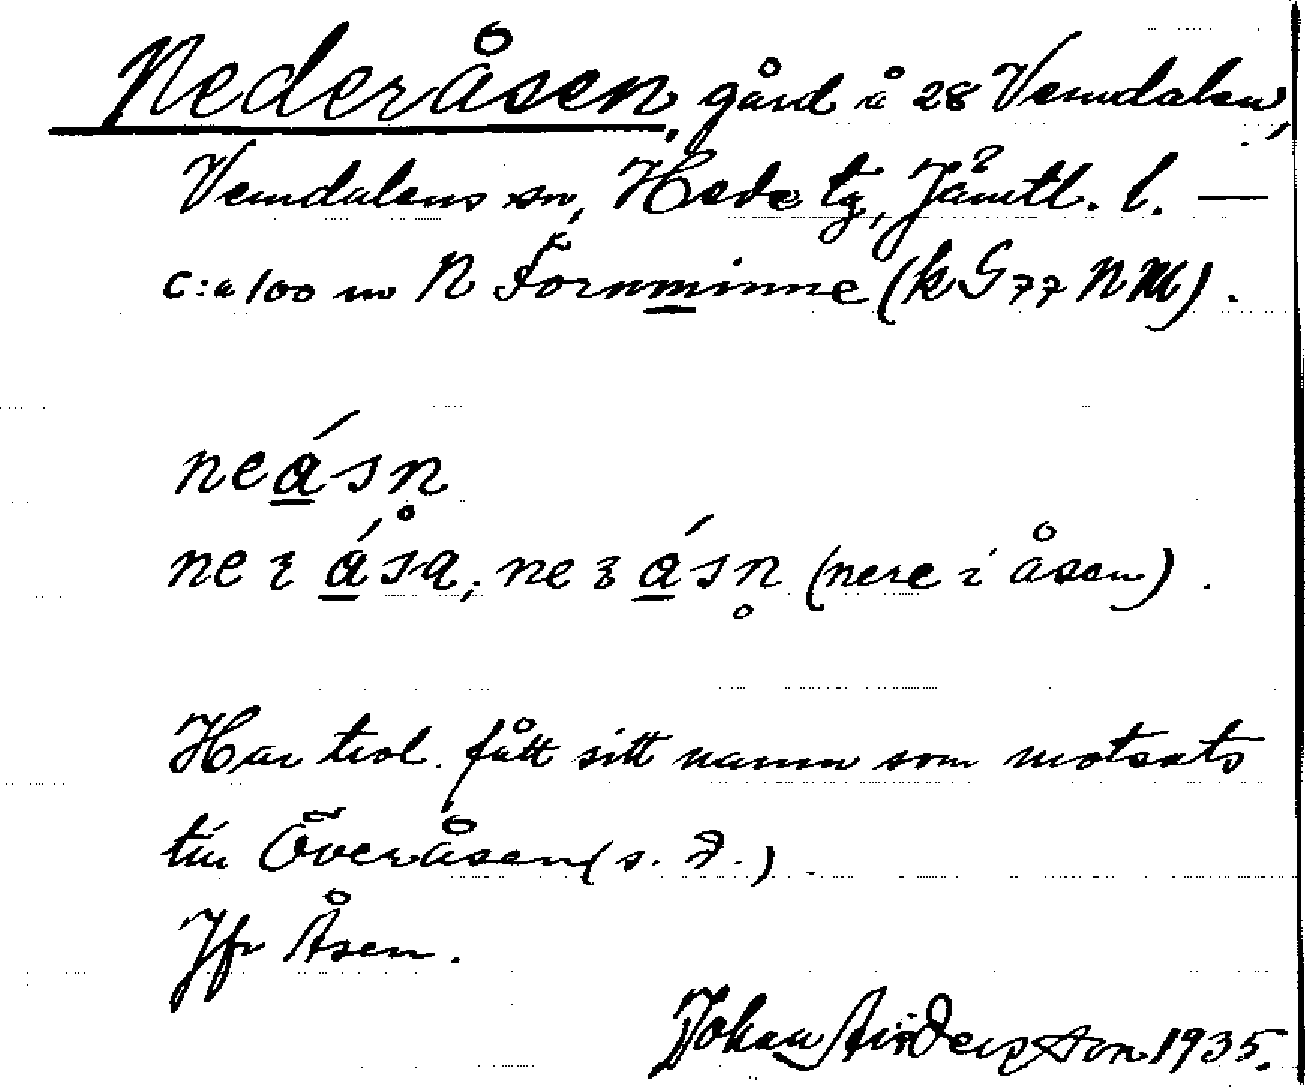 Nederåsen, gård å 28 Vemdalen,
Vemdalens sn, Hede tg, Jämtl. l. —
c:a 100 m N Fornminne (k G 77 NM).
neásn
ne ꝛ ása; ne ꝛ ásn̥ (nere i åsen).
Har trol. fått sitt namn som motsats
till Överåsen (s. d.)
Jfr Åsen.
Johan Anderzson 1935.